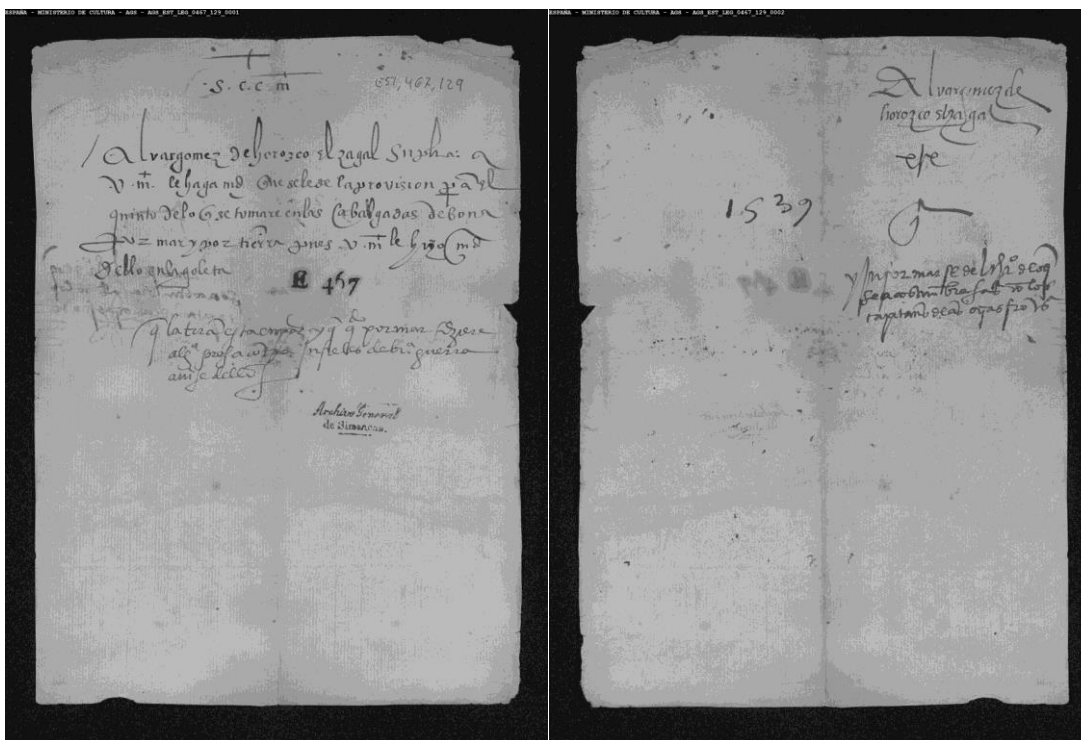 ESPAÑA - MINISTERIO DE CULTURA - AGS - AGS_EST_LEG_0467_129_0001
S. c. c. m
EST, 467, 129
Alvargomez de horozco el zagal Suplica a
v. m. le haga md que se le de la provision pa el
quinto de lo q se tomare en las Cabalgadas de bona
por mar y por tierra pues v. m. le hizo md
dello en la goleta
E 467
q la tra esta en paz y q por mar
alg presa infieles de guerra
avise dello
Archivo General
de Simancas.
ESPAÑA - MINISTERIO DE CULTURA - AGS - AGS_EST_LEG_0467_129_0002
Alvargomez de
horozco el zagal
1539
ynformarse de lo q
se acostumbra
capitanes fro